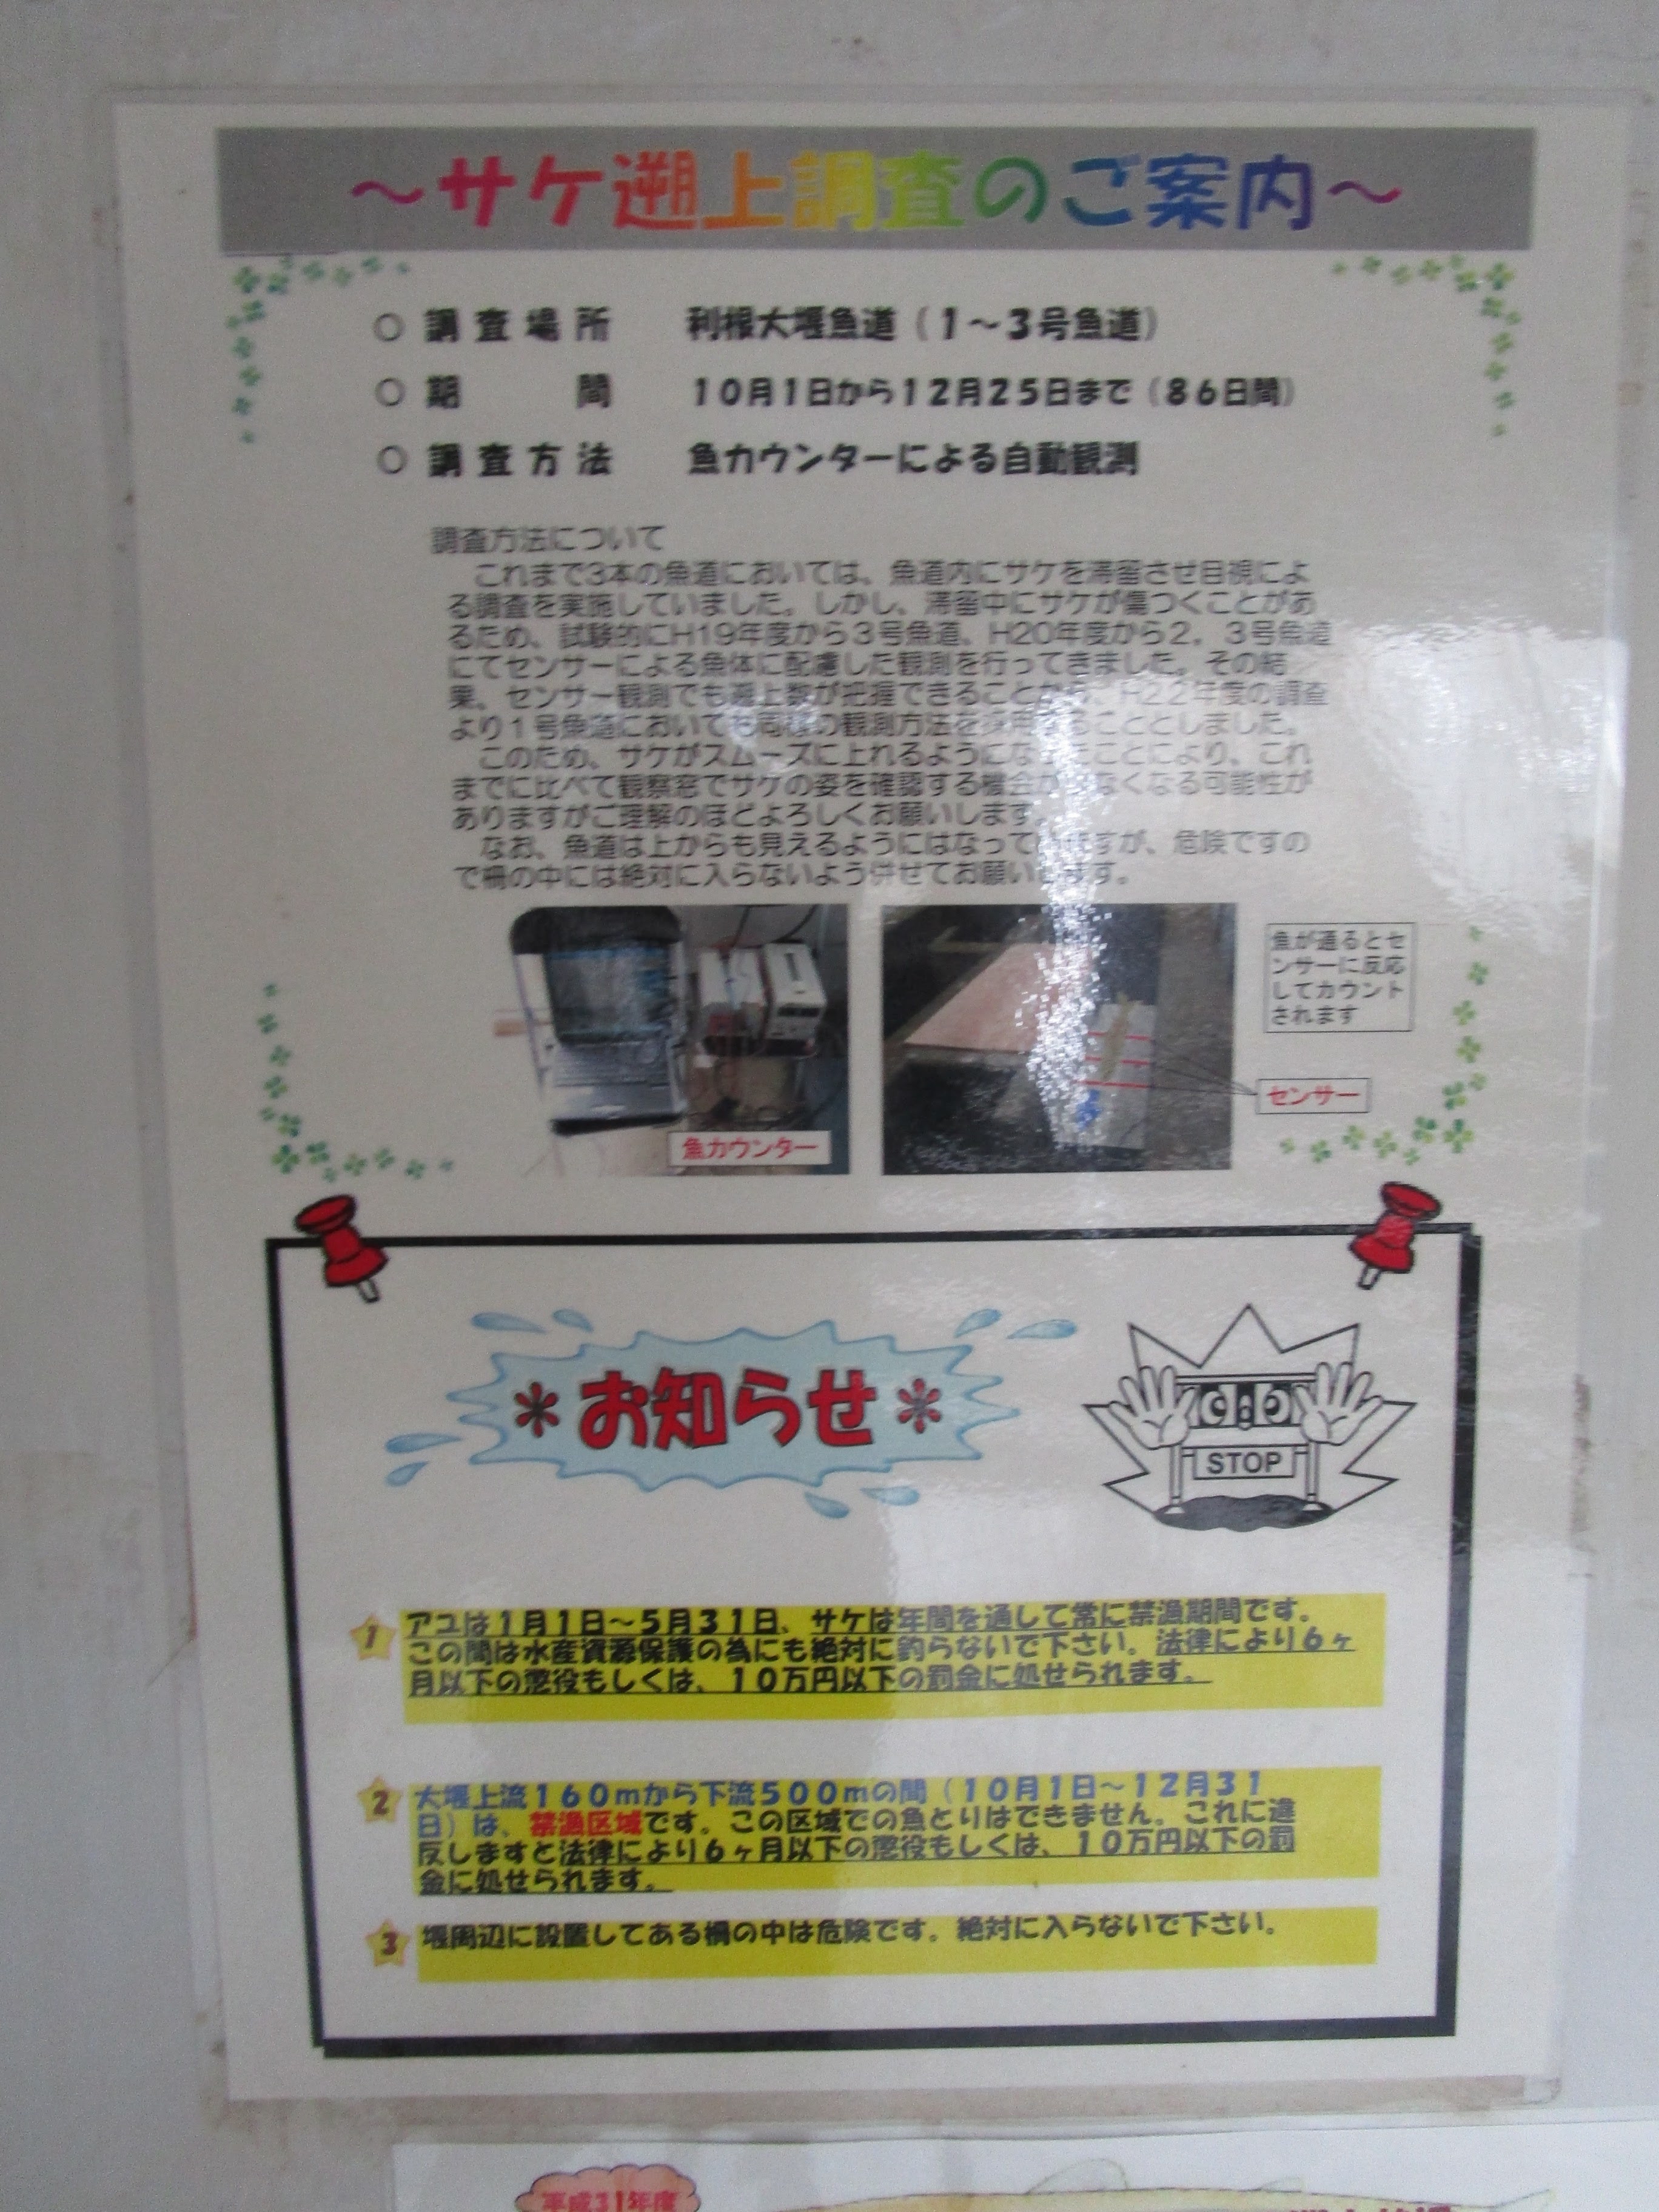 ～サケ遡上調査のご案内～
○ 調査場所 利根大堰魚道（１～３号魚道）
○ 期間 １０月１日から１２月２５日まで（８６日間）
○ 調査方法 魚カウンターによる自動観測
調査方法について
これまで3本の魚道においては、魚道内にサケを滞留させ目視によ
る調査を実施していました。しかし、滞留中にサケが傷つくことがあ
るため、試験的にH19年度から３号魚道、H20年度から2．３号魚道
にてセンサーによる魚体に配慮した観測を行ってきました。その結
果、センサー観測でも遡上数が把握できることから、H２２年度の調査
より１号魚道においても同様の観測方法を採用することとしました。
このため、サケがスムーズに上れるようになることにより、これ
までに比べて観察窓でサケの姿を確認する機会が少なくなる可能性が
ありますがご理解のほどよろしくお願いします。
なお、魚道は上からも見えるようにはなっていますが、危険ですの
で柵の中には絶対に入らないよう併せてお願いします。
魚が通るとセ
ンサーに反応
してカウント
されます
センサー
魚カウンター
＊お知らせ＊
STOP
1 アユは１月１日～５月３１日、サケは年間を通して常に禁漁期間です。
この間は水産資源保護の為にも絶対に釣らないで下さい。法律により６ヶ
月以下の懲役もしくは、１０万円以下の罰金に処せられます。
2 大堰上流１６０ｍから下流５００ｍの間（１０月１日～１２月３１
日）は、禁漁区域です。この区域での魚とりはできません。これに違
反しますと法律により６ヶ月以下の懲役もしくは、１０万円以下の罰
金に処せられます。
3 堰周辺に設置してある柵の中は危険です。絶対に入らないで下さい。
平成31年度